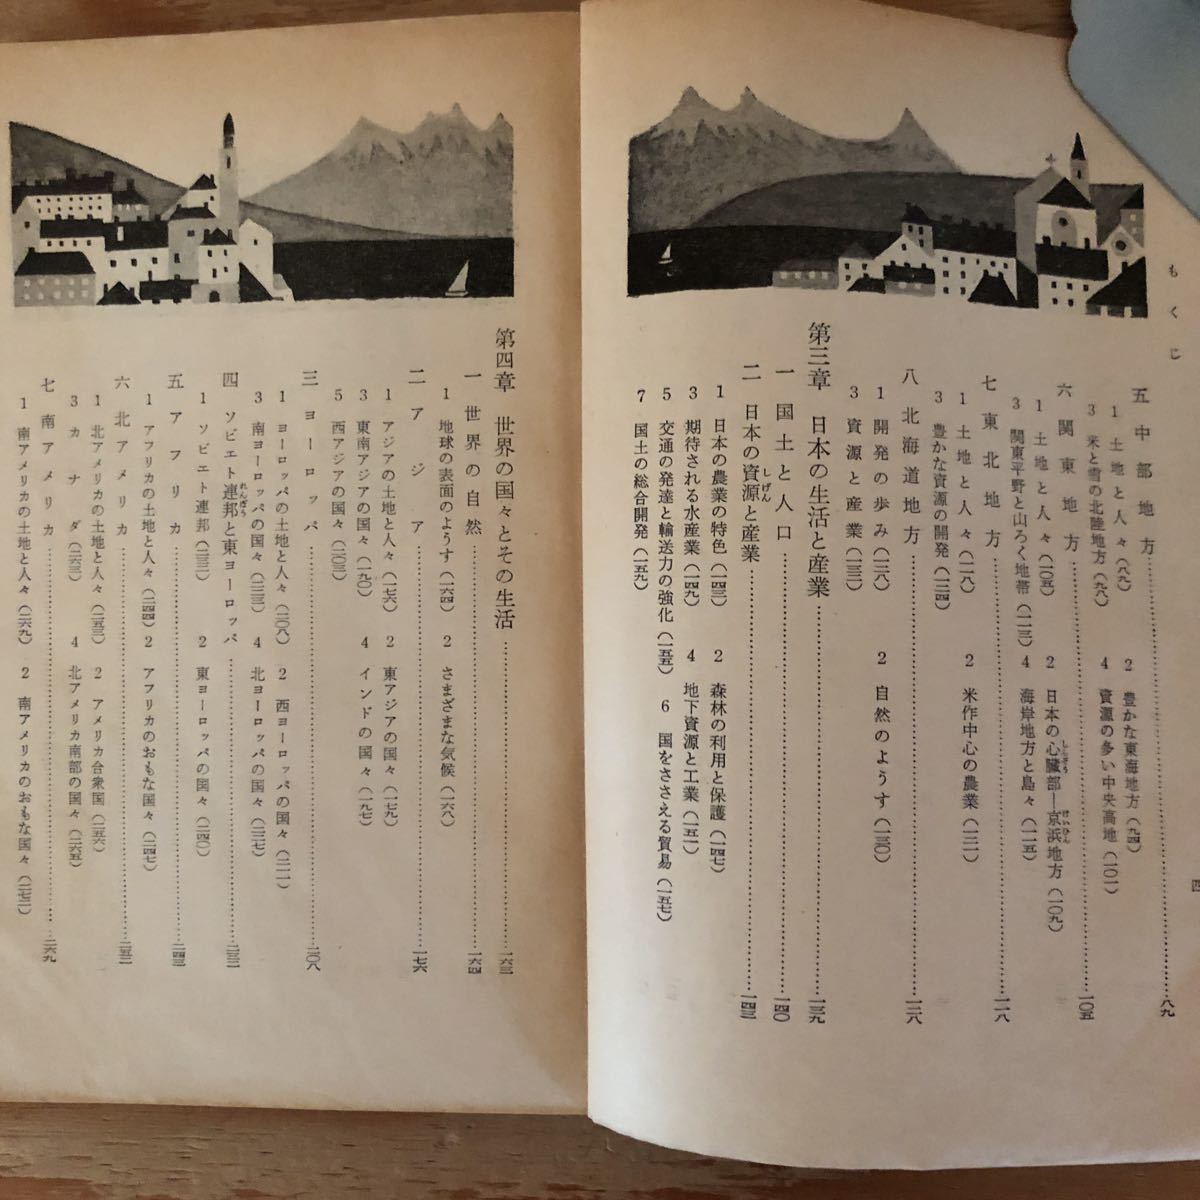 もくじ
四
五 中部地方……八九
1 土地と人々（八九） 2 豊かな東海地方（九四）
3 米と雪の北陸地方（九八） 4 資源の多い中央高地（一〇一）
六 関東地方……一〇五
1 土地と人々（一〇五） 2 日本の心臓部―京浜地方（一〇九）
しんぞう けいひん
3 関東平野と山ろく地帯（一一三） 4 海岸地方と島々（一一五）
七 東北地方……一一八
1 土地と人々（一一八） 2 米作中心の農業（一二一）
3 豊かな資源の開発（一二四）
八 北海道地方……一二八
1 開発の歩み（一二八） 2 自然のようす（一三〇）
3 資源と産業（一三一）
第三章 日本の生活と産業……一三九
一 国土と人口……一四〇
二 日本の資源と産業……一四三
しげん
1 日本の農業の特色（一四三） 2 森林の利用と保護（一四七）
3 期待される水産業（一四九） 4 地下資源と工業（一五一）
5 交通の発達と輸送力の強化（一五五） 6 国をささえる貿易（一五七）
7 国土の総合開発（一五九）
第四章 世界の国々とその生活……一六三
一 世界の自然……一六四
1 地球の表面のようす（一六四） 2 さまざまな気候（一六八）
二 アジア……一七六
1 アジアの土地と人々（一七六） 2 東アジアの国々（一七九）
3 東南アジアの国々（一九〇） 4 インドの国々（一九七）
5 西アジアの国々（二〇三）
三 ヨーロッパ……二〇八
1 ヨーロッパの土地と人々（二〇八） 2 西ヨーロッパの国々（二一一）
3 南ヨーロッパの国々（二二三） 4 北ヨーロッパの国々（二二七）
四 ソビエト連邦と東ヨーロッパ……二三二
れんぽう
1 ソビエト連邦（二三二） 2 東ヨーロッパの国々（二四〇）
五 アフリカ……二四三
1 アフリカの土地と人々（二四四） 2 アフリカのおもな国々（二四七）
六 北アメリカ……二五二
1 北アメリカの土地と人々（二五三） 2 アメリカ合衆国（二五六）
3 カナダ（二六三） 4 北アメリカ南部の国々（二六五）
七 南アメリカ……二六九
1 南アメリカの土地と人々（二六九） 2 南アメリカのおもな国々（二七二）